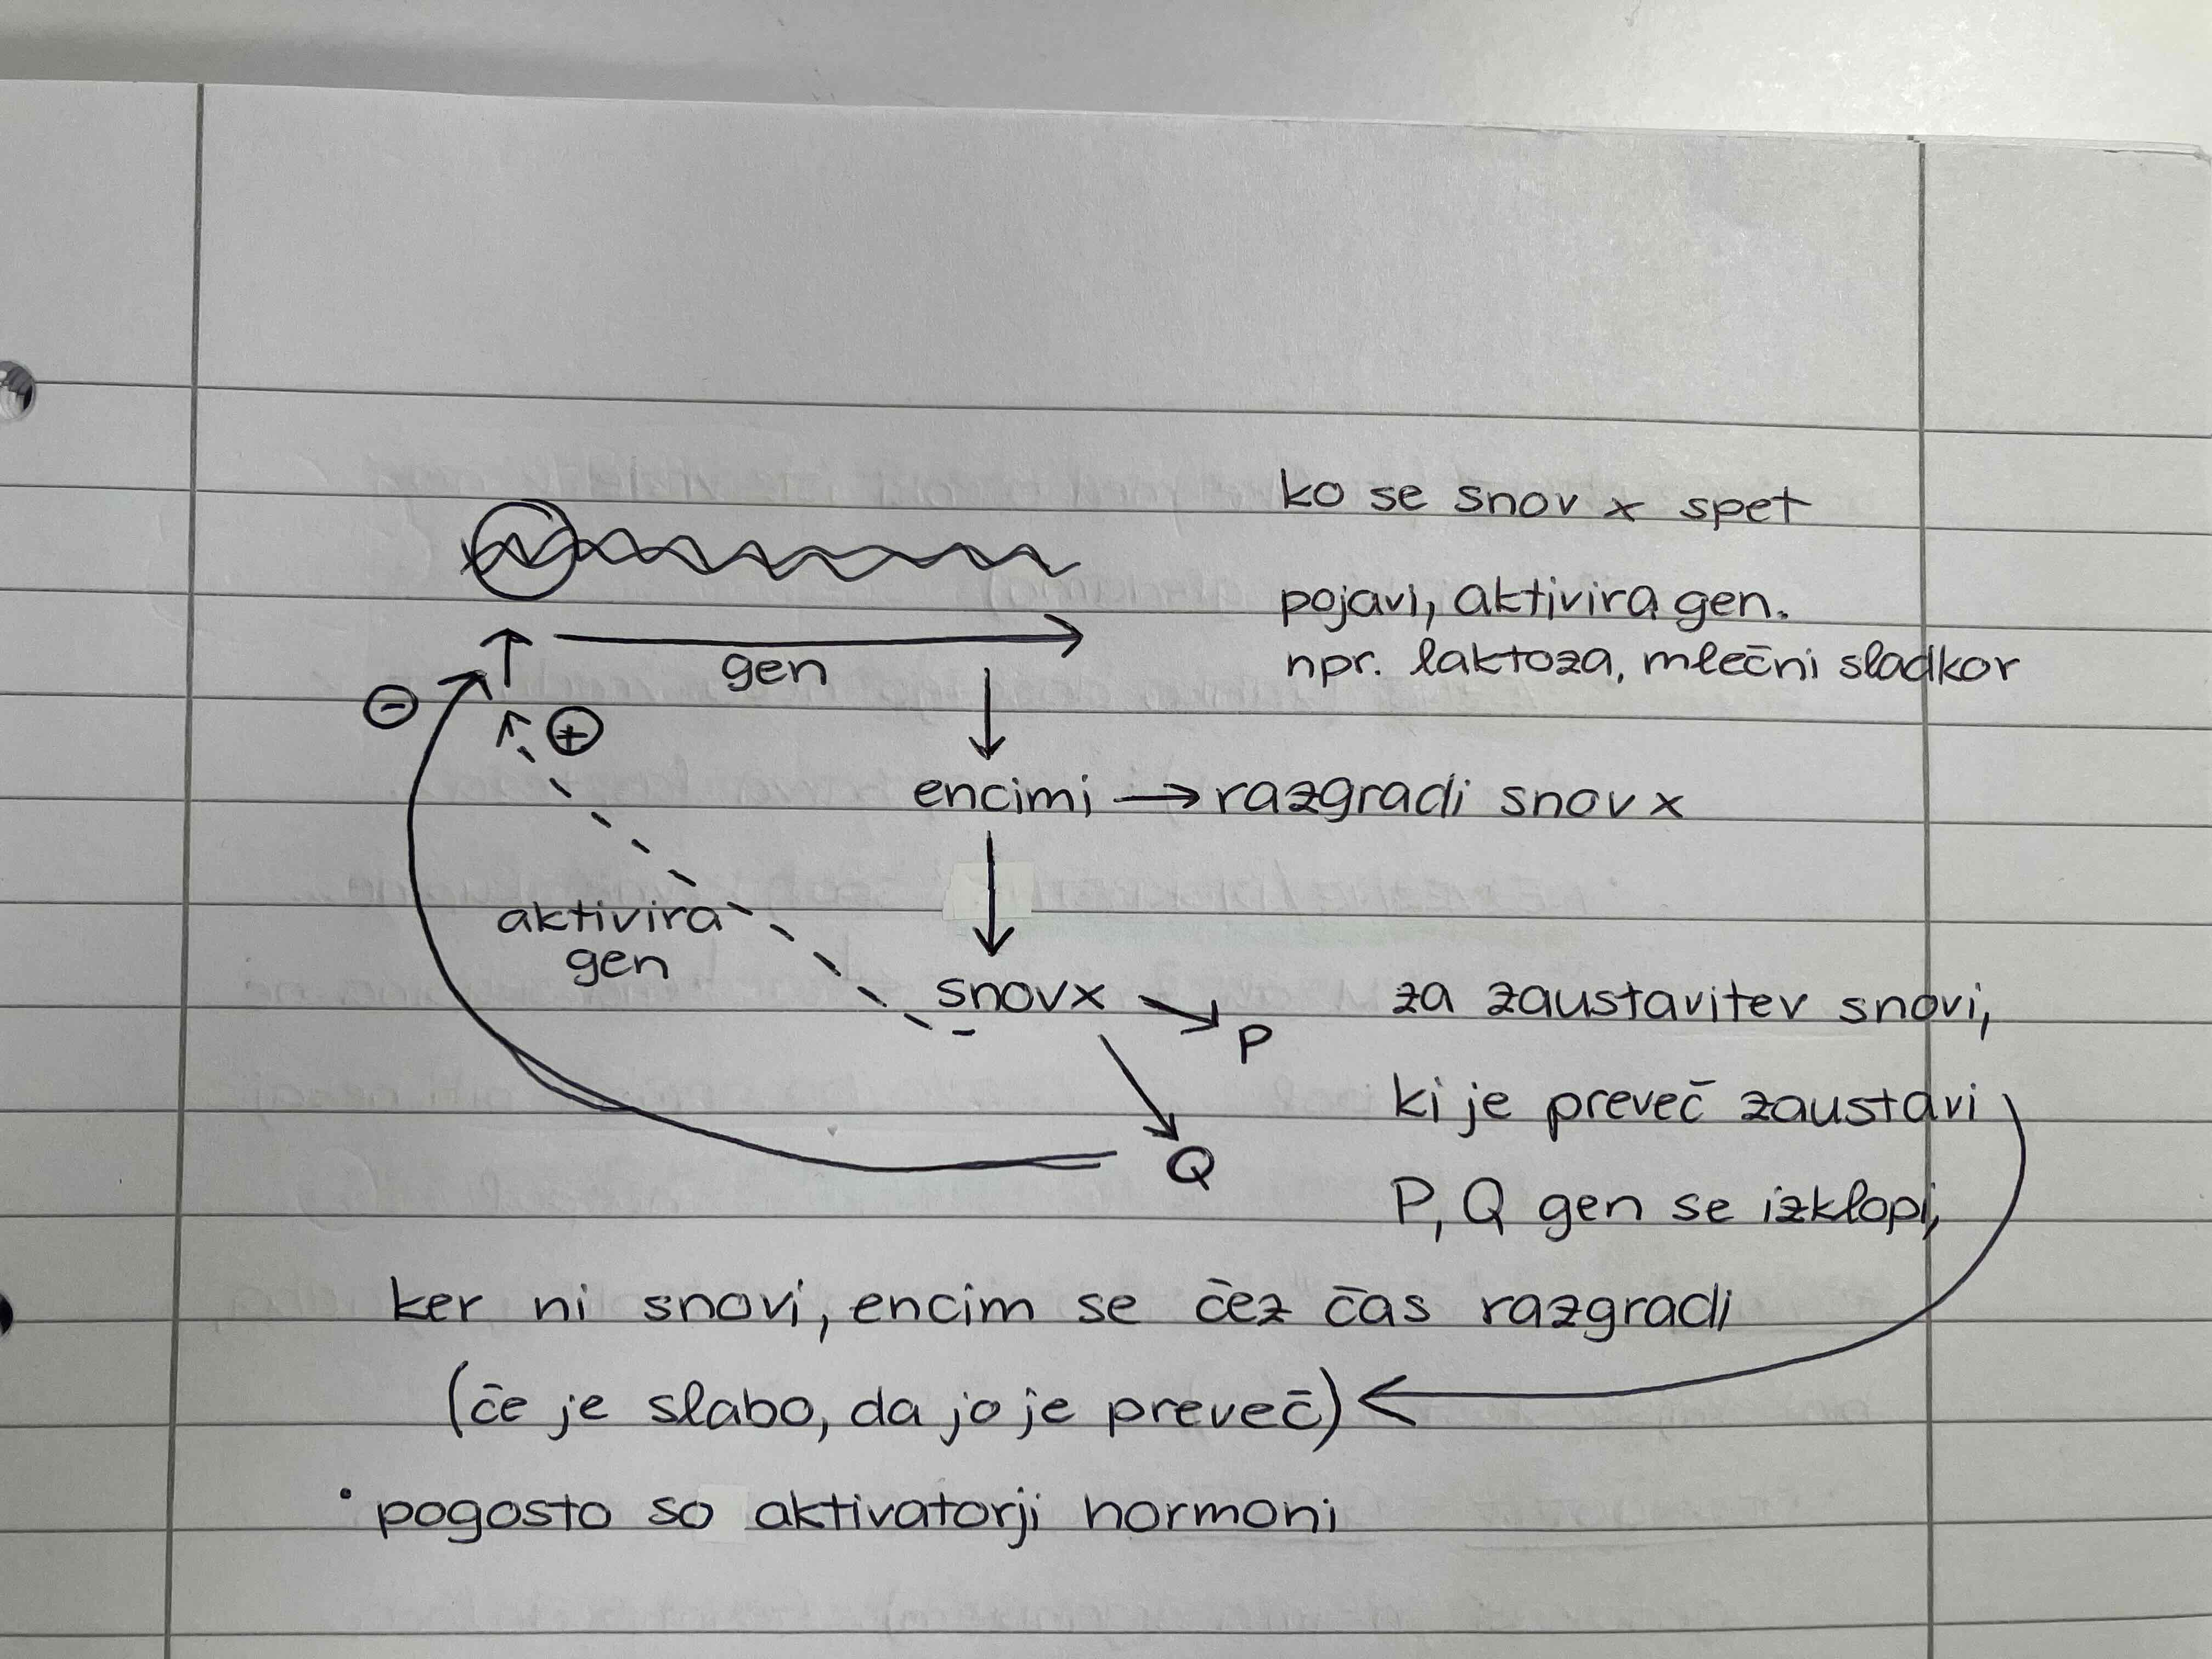 ko se snov x spet
pojavi, aktivira gen.
npr. laktoza, mlečni sladkor
gen
⊖
⊕
encimi → razgradi snov x
aktivira
gen
snov x → P
Q
za zaustavitev snovi,
ki je preveč zaustavi
P, Q gen se izklopi,
ker ni snovi, encim se čez čas razgradi
(če je slabo, da jo je preveč)
• pogosto so aktivatorji hormoni